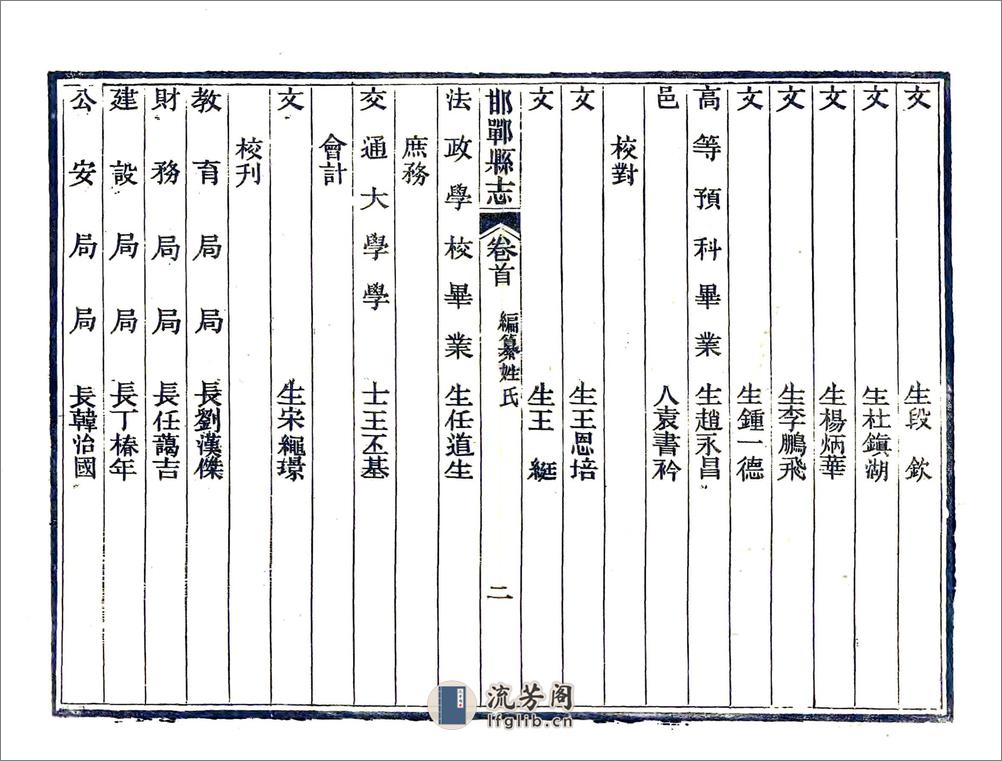 文生段欽
文生杜鎭湖
文生楊炳華
文生李鵬飛
文生鍾一德
高等預科畢業生趙永昌
邑人袁書衿
校對
文生王恩培
文生王綎
邯鄲縣志 卷首 編纂姓氏 二
法政學校畢業生任道生
庶務
交通大學學士王丕基
會計
文生宋繩璟
校刊
教育局局長劉漢傑
財務局局長任藹吉
建設局局長丁椿年
公安局局長韓治國
流芳阁
lfglib.cn